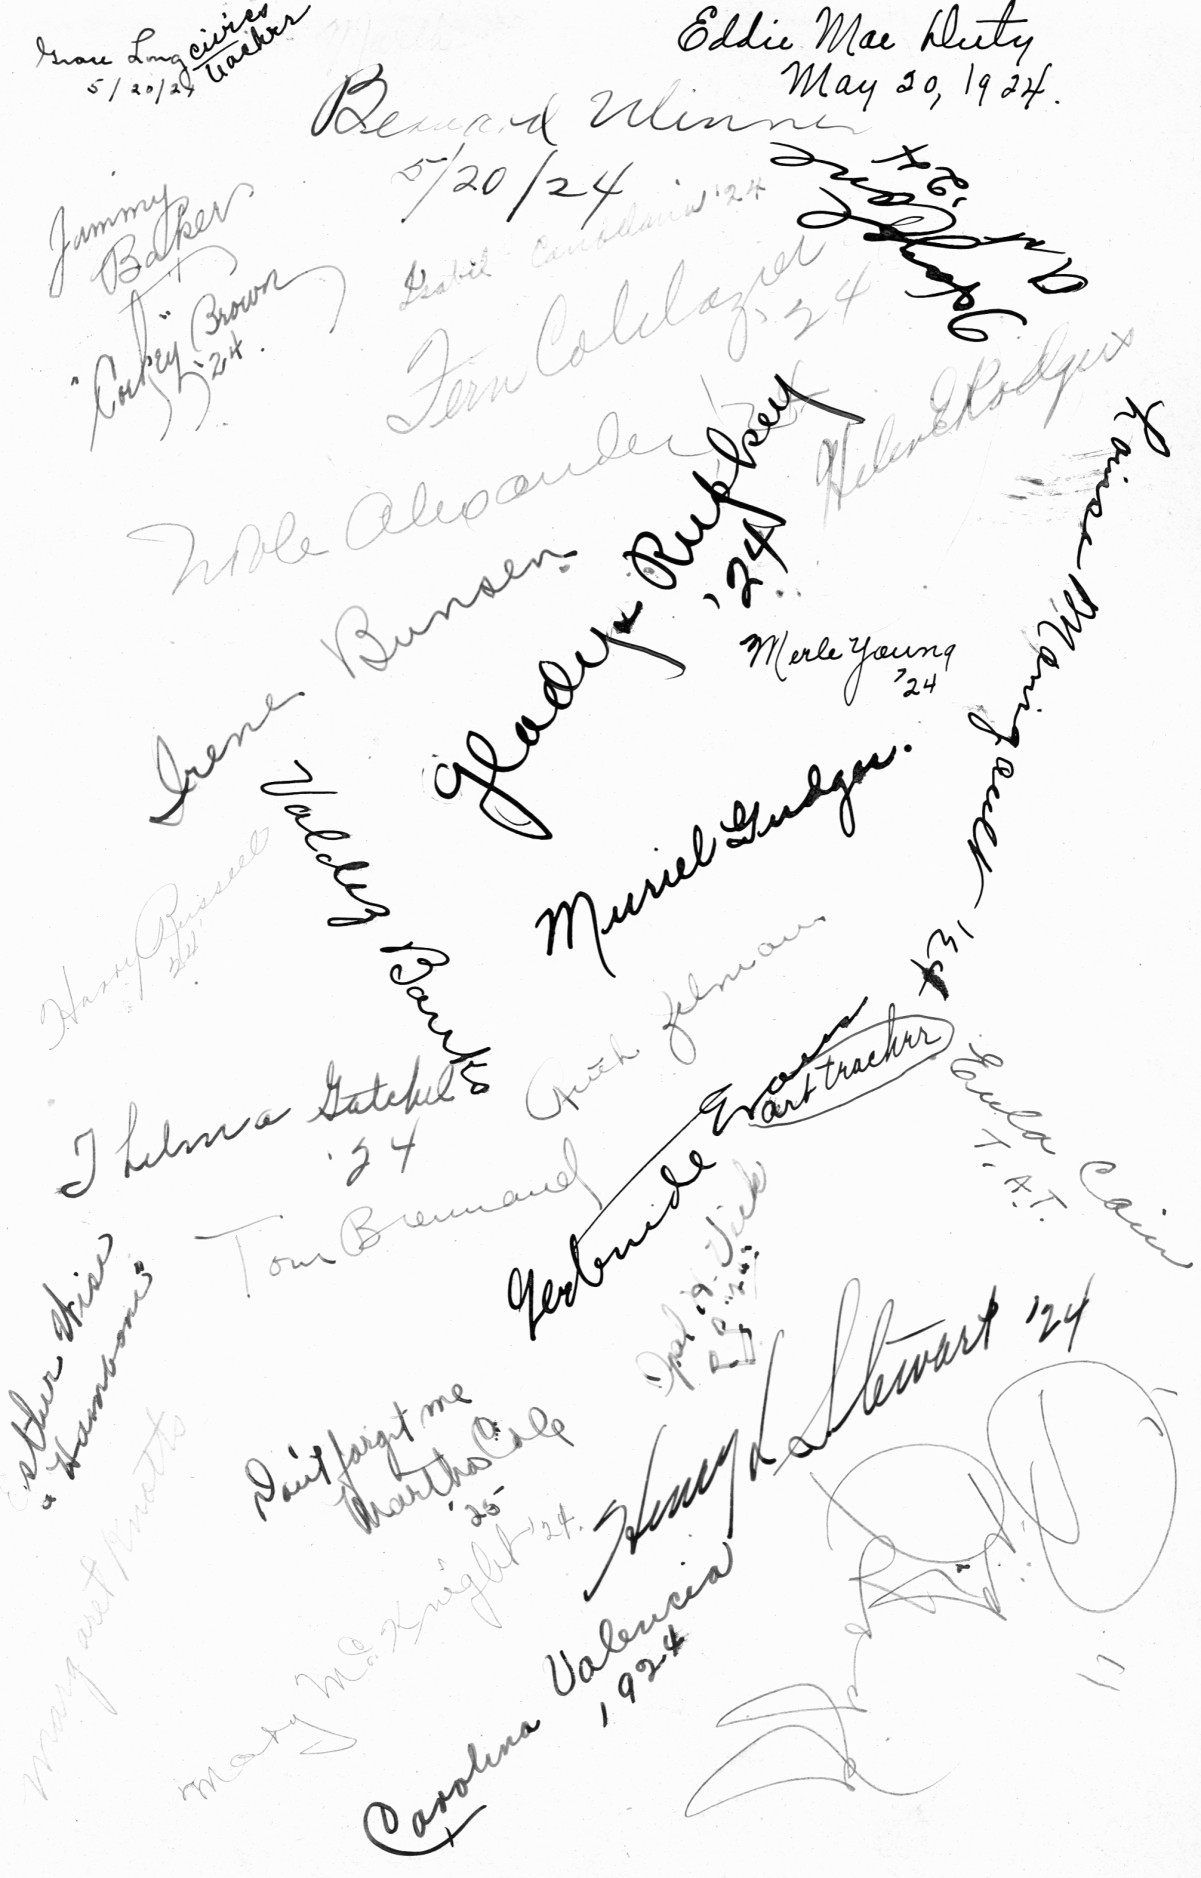 Grace Long civics
teacher
5/20/24
Eddie Mae Duty
May 20, 1924.
Bernard Winner
5/20/24
Jammy
Baker
"Corkey" Brown
'24.
Isabil '24
Fern
'24
'24
Helen E Rodgers
Noble Alexander '24
Gladys Rupkey
'24
Louise Moningault '24
Irene Bunsen
Merle Young
'24
Valdez Banks
Muriel Gudger.
Harry Russell
24
Ruth
Thelma Gatchel
'24
Gertrude Evans
art teacher
Eula Cain
T.A.T.
Tom Brennand
Esther Wise
"Hambone"
Opal Vick
Henry L Stewart '24
Don't forget me
Martha Cole
'25
Margaret Knotts
Mary McKnight '24.
Carolina Valencia
1924